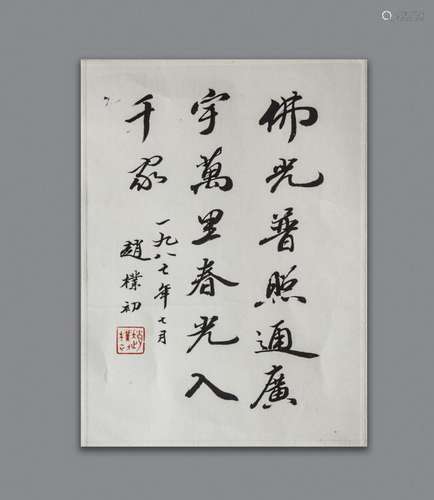 佛光普照通廣
宇萬里春光入
千家
一九八七年七月
趙樸初